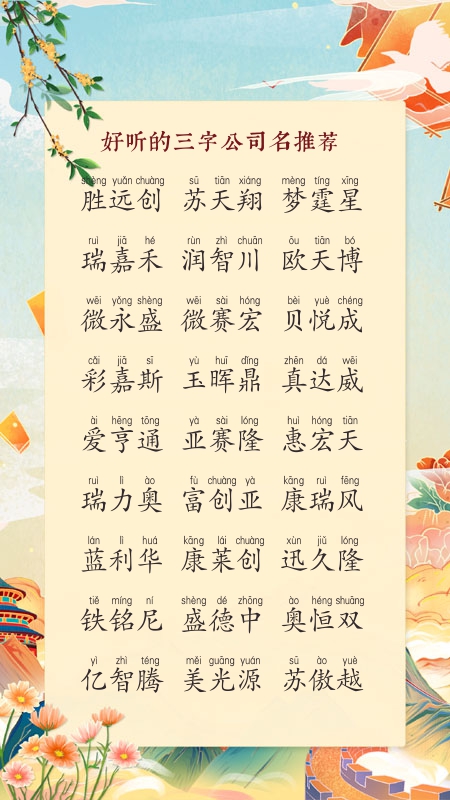 好听的三字公司名推荐
shèng yuǎn chuàng sū tiān xiáng mèng tíng xīng
胜远创 苏天翔 梦霆星
ruì jiā hé rùn zhì chuān ōu tiān bó
瑞嘉禾 润智川 欧天博
wēi yǒng shèng wēi sài hóng bèi yuè chéng
微永盛 微赛宏 贝悦成
cǎi jiā sī yù huī dǐng zhēn dá wēi
彩嘉斯 玉晖鼎 真达威
ài hēng tōng yà sài lóng huì hóng tiān
爱亨通 亚赛隆 惠宏天
ruì lì ào fù chuàng yà kāng ruì fēng
瑞力奥 富创亚 康瑞风
lán lì huá kāng lái chuàng xùn jiǔ lóng
蓝利华 康莱创 迅久隆
tiě míng ní shèng dé zhōng ào héng shuāng
铁铭尼 盛德中 奥恒双
yì zhì téng měi guāng yuán sū ào yuè
亿智腾 美光源 苏傲越